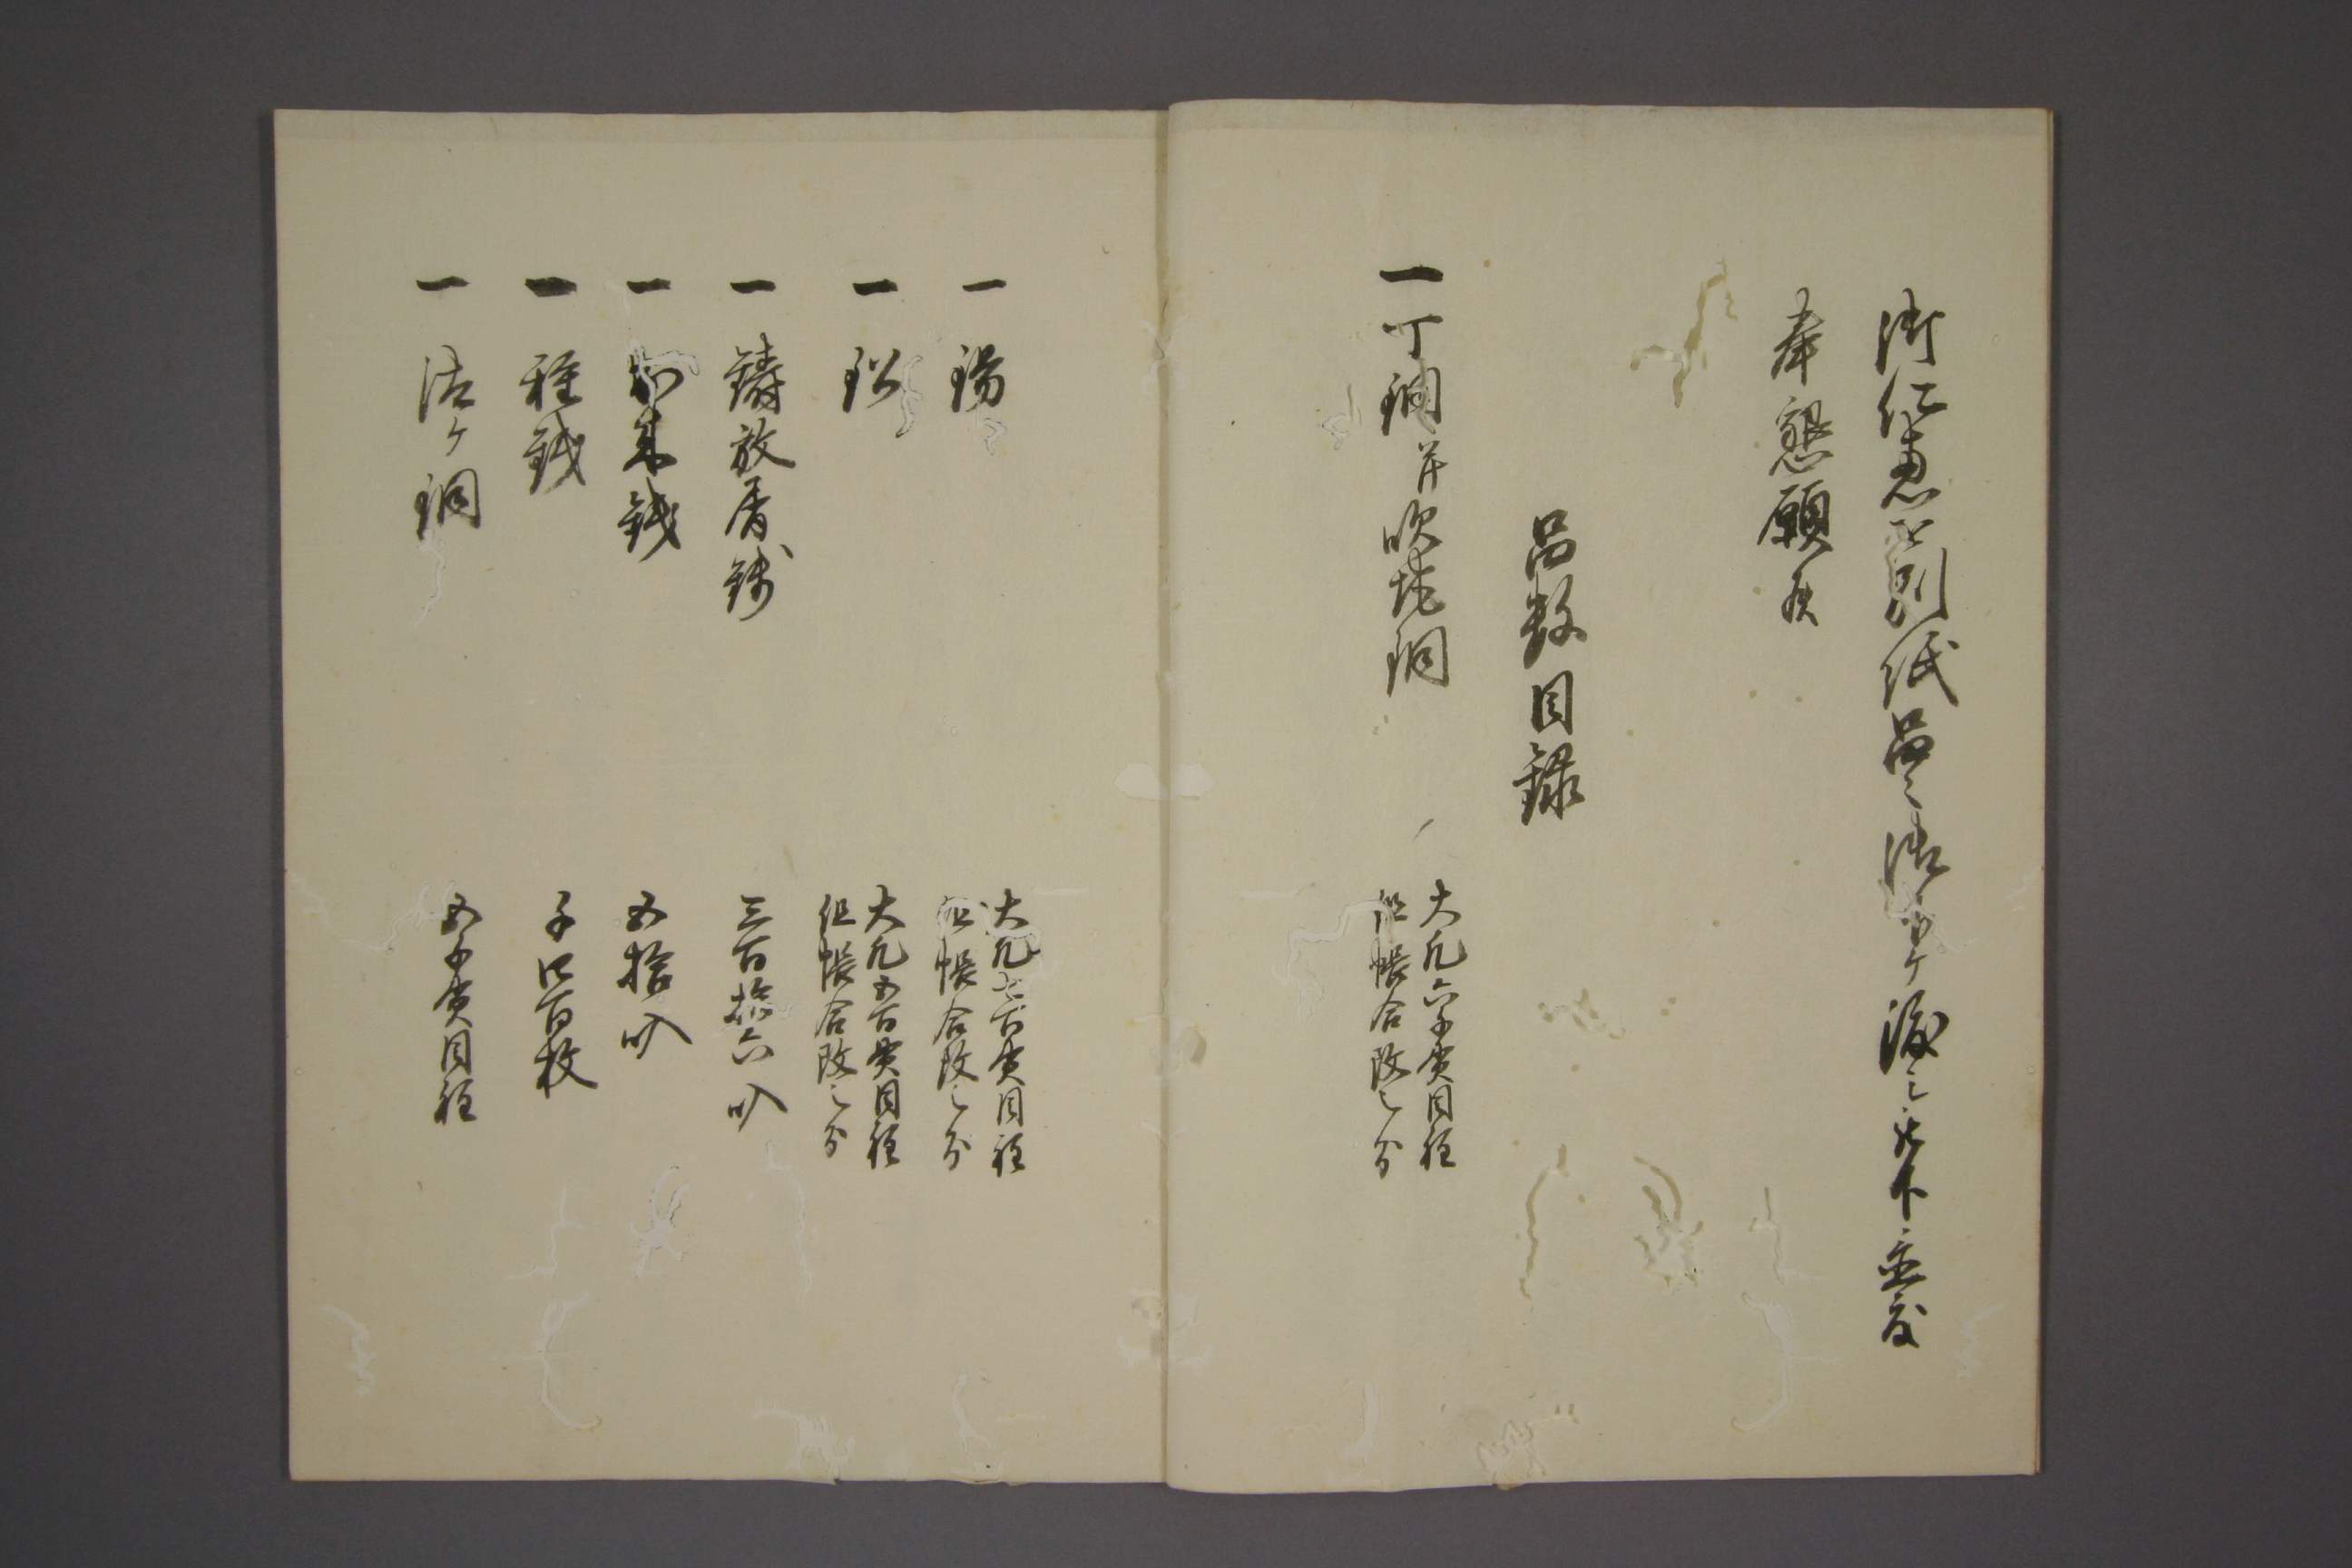 御仁恵を以別紙品々御下ケ渡之程
奉懇願候
品数目録
一丁銅并吹地銅
大凡六千貫目程
但帳合改之分
一錫
大凡七百貫目程
但帳合改之分
一鉛
大凡五百貫目程
但帳合改之分
一鋳放屑銭
三百拾六叺
一出来銭
五拾叺
一種銭
千四百枚
一湯ケ銅
五千貫目程